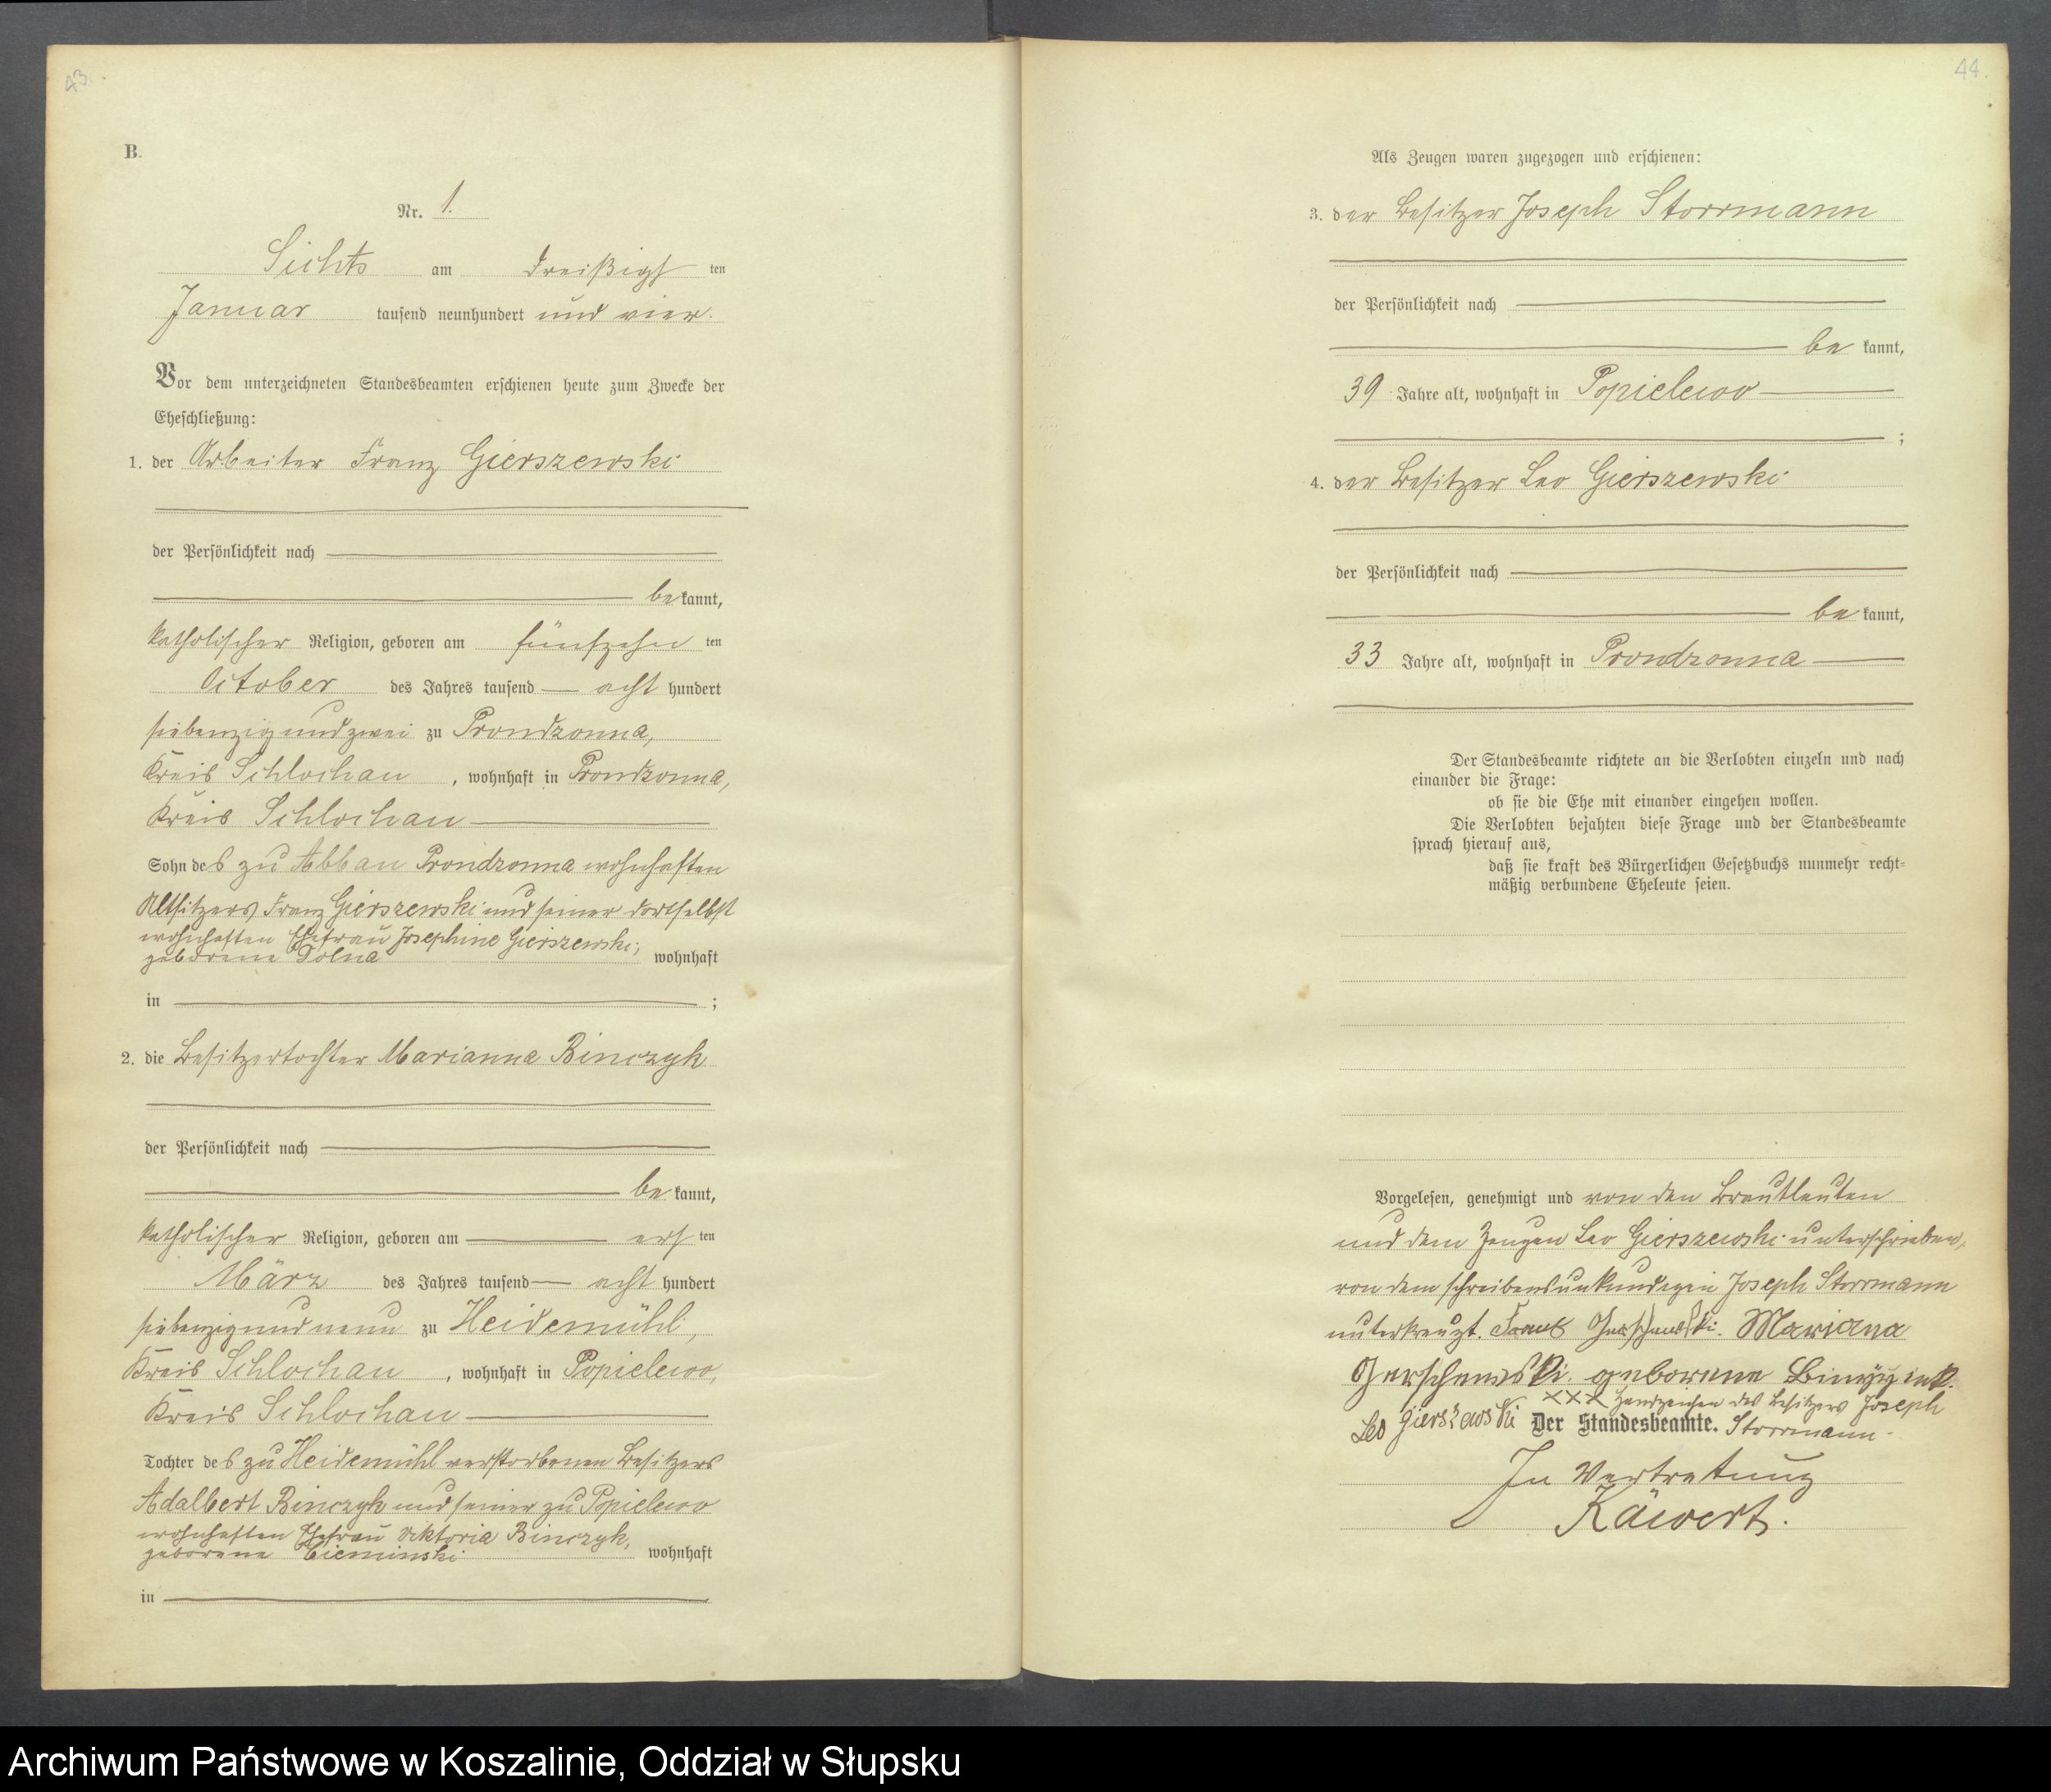 43.
B.
Nr. 1.
Sichts am dreißigsten
Januar tausend neunhundert und vier.
Vor dem unterzeichneten Standesbeamten erschienen heute zum Zwecke der
Eheschließung:
1. der Arbeiter Franz Gierszewski
der Persönlichkeit nach
bekannt,
katholischer Religion, geboren am fünfzehnten
October des Jahres tausend acht hundert
siebenzig und zwei zu Prondzonna,
Kreis Schlochau, wohnhaft in Prondzonna,
Kreis Schlochau
Sohn des zu Abbau Prondzonna wohnhaften
Altsitzers Franz Gierszewski und seiner dortselbst
wohnhaften Ehefrau Josephine Gierszewski,
geborene Dolna wohnhaft
in ;
2. die Besitzertochter Marianna Binczyk
der Persönlichkeit nach
bekannt,
katholischer Religion, geboren am ersten
März des Jahres tausend acht hundert
siebenzig und neun zu Heidemühl,
Kreis Schlochau, wohnhaft in Popielewo,
Kreis Schlochau
Tochter des zu Heidemühl verstorbenen Besitzers
Adalbert Binczyk und seiner zu Popielewo
wohnhaften Ehefrau Viktoria Binczyk,
geborene Cieminski wohnhaft
in
44.
Als Zeugen waren zugezogen und erschienen:
3. der Besitzer Joseph Storrmann
der Persönlichkeit nach
bekannt,
39 Jahre alt, wohnhaft in Popielewo
;
4. der Besitzer Leo Gierszewski
der Persönlichkeit nach
bekannt,
33 Jahre alt, wohnhaft in Prondzonna
Der Standesbeamte richtete an die Verlobten einzeln und nach
einander die Frage:
ob sie die Ehe mit einander eingehen wollen.
Die Verlobten bejahten diese Frage und der Standesbeamte
sprach hierauf aus,
daß sie kraft des Bürgerlichen Gesetzbuchs nunmehr recht=
mäßig verbundene Eheleute seien.
Vorgelesen, genehmigt und von den Brautleuten
und dem Zeugen Leo Gierszewski unterschrieben,
von dem schreibensunkundigen Joseph Storrmann
unterkreuzt. Mariana
Gerschewski geborene
XXX Handzeichen des Besitzers Joseph
Leo Gierszewski Der Standesbeamte. Storrmann.
In Vertretung
Käwert.
Archiwum Państwowe w Koszalinie, Oddział w Słupsku